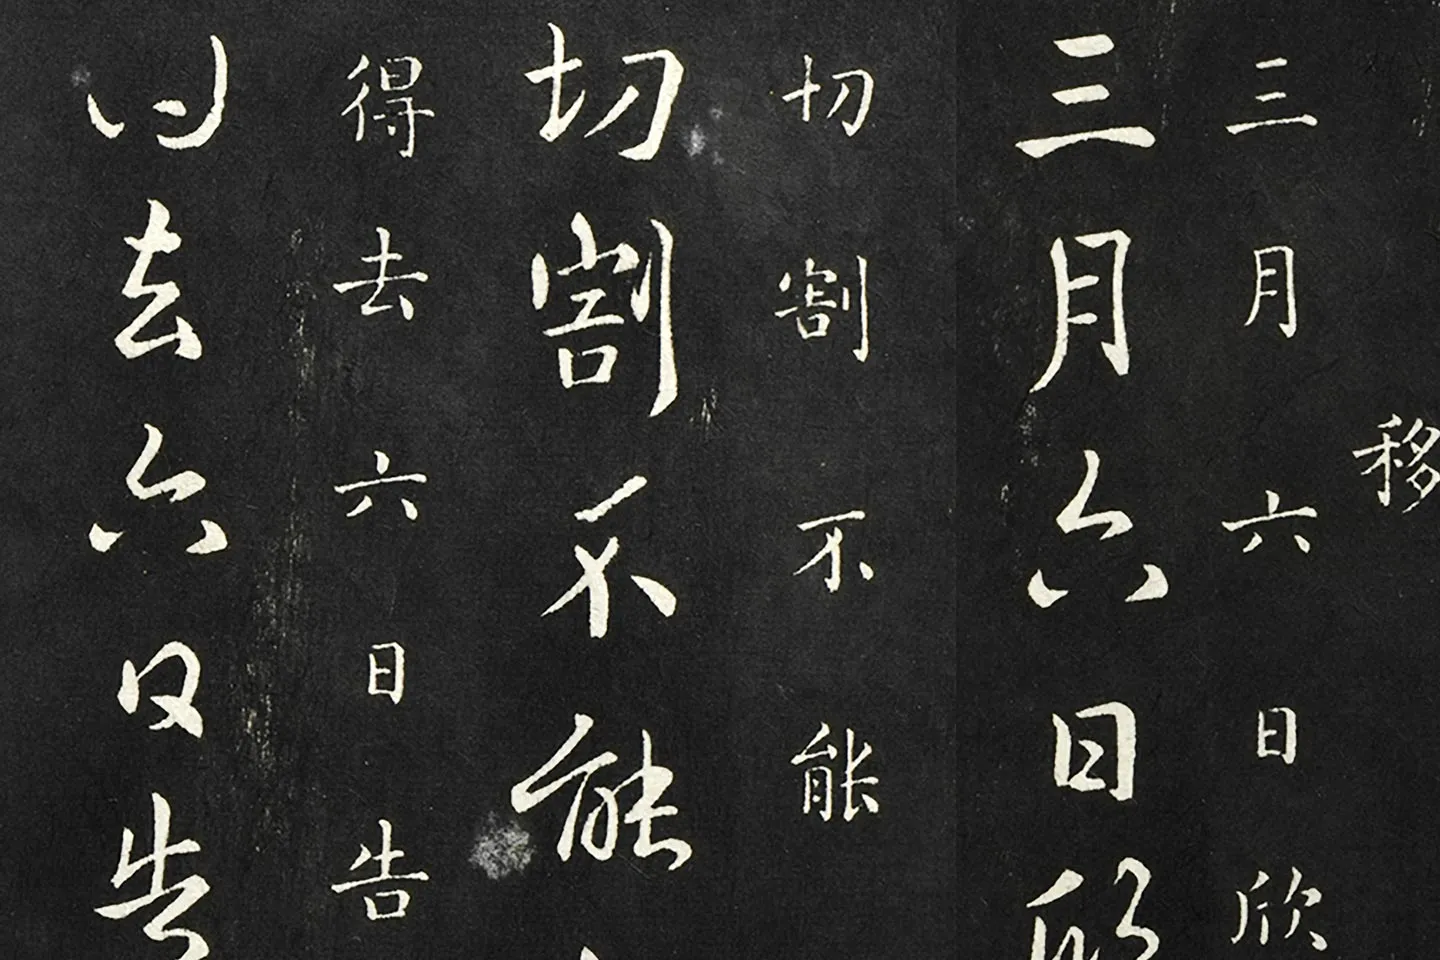 移
三月六日欣
三月六日欣
切割不能
切割不能
得去六日告
得去六日告